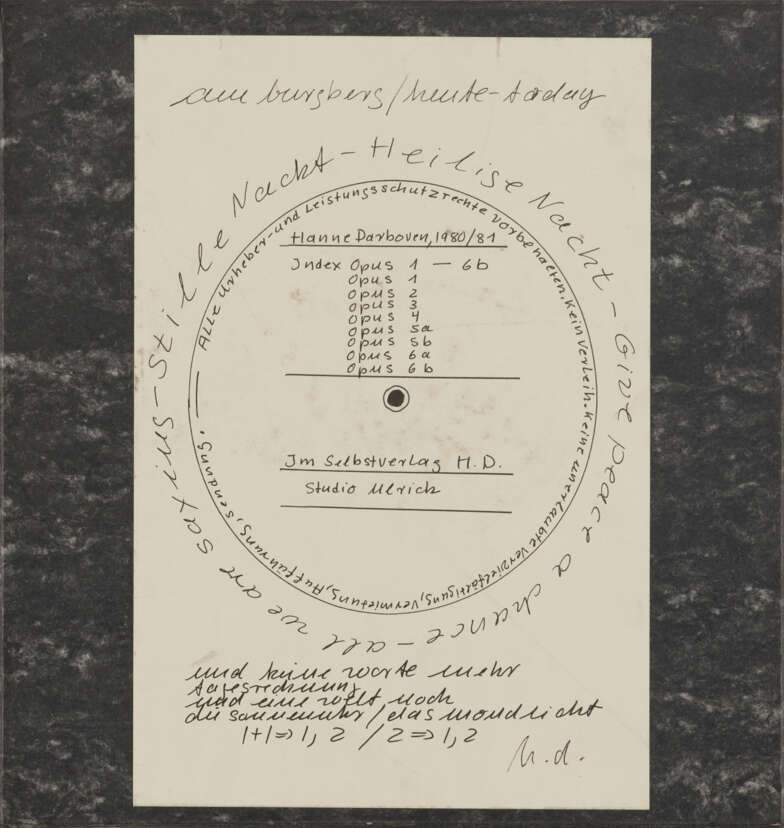 am burgberg/heute-today
Stille Nacht - Heilige Nacht - Give peace a chance - all we are saying -
Alle Urheber- und Leistungsschutzrechte vorbehalten. Kein Verleih. Keine unerlaubte Vervielfältigung, Vermietung, Aufführung, Sendung. —
Hanne Darboven, 1980/81
Index Opus 1 — 6b
Opus 1
Opus 2
Opus 3
Opus 4
Opus 5a
Opus 5b
Opus 6a
Opus 6b
Im Selbstverlag H.D.
Studio Ulrich
und keine worte mehr
tagesrechnung
und eine welt noch
die sonnenuhr/das mondlicht
1+1=>1, 2 / 2=>1, 2
h.d.